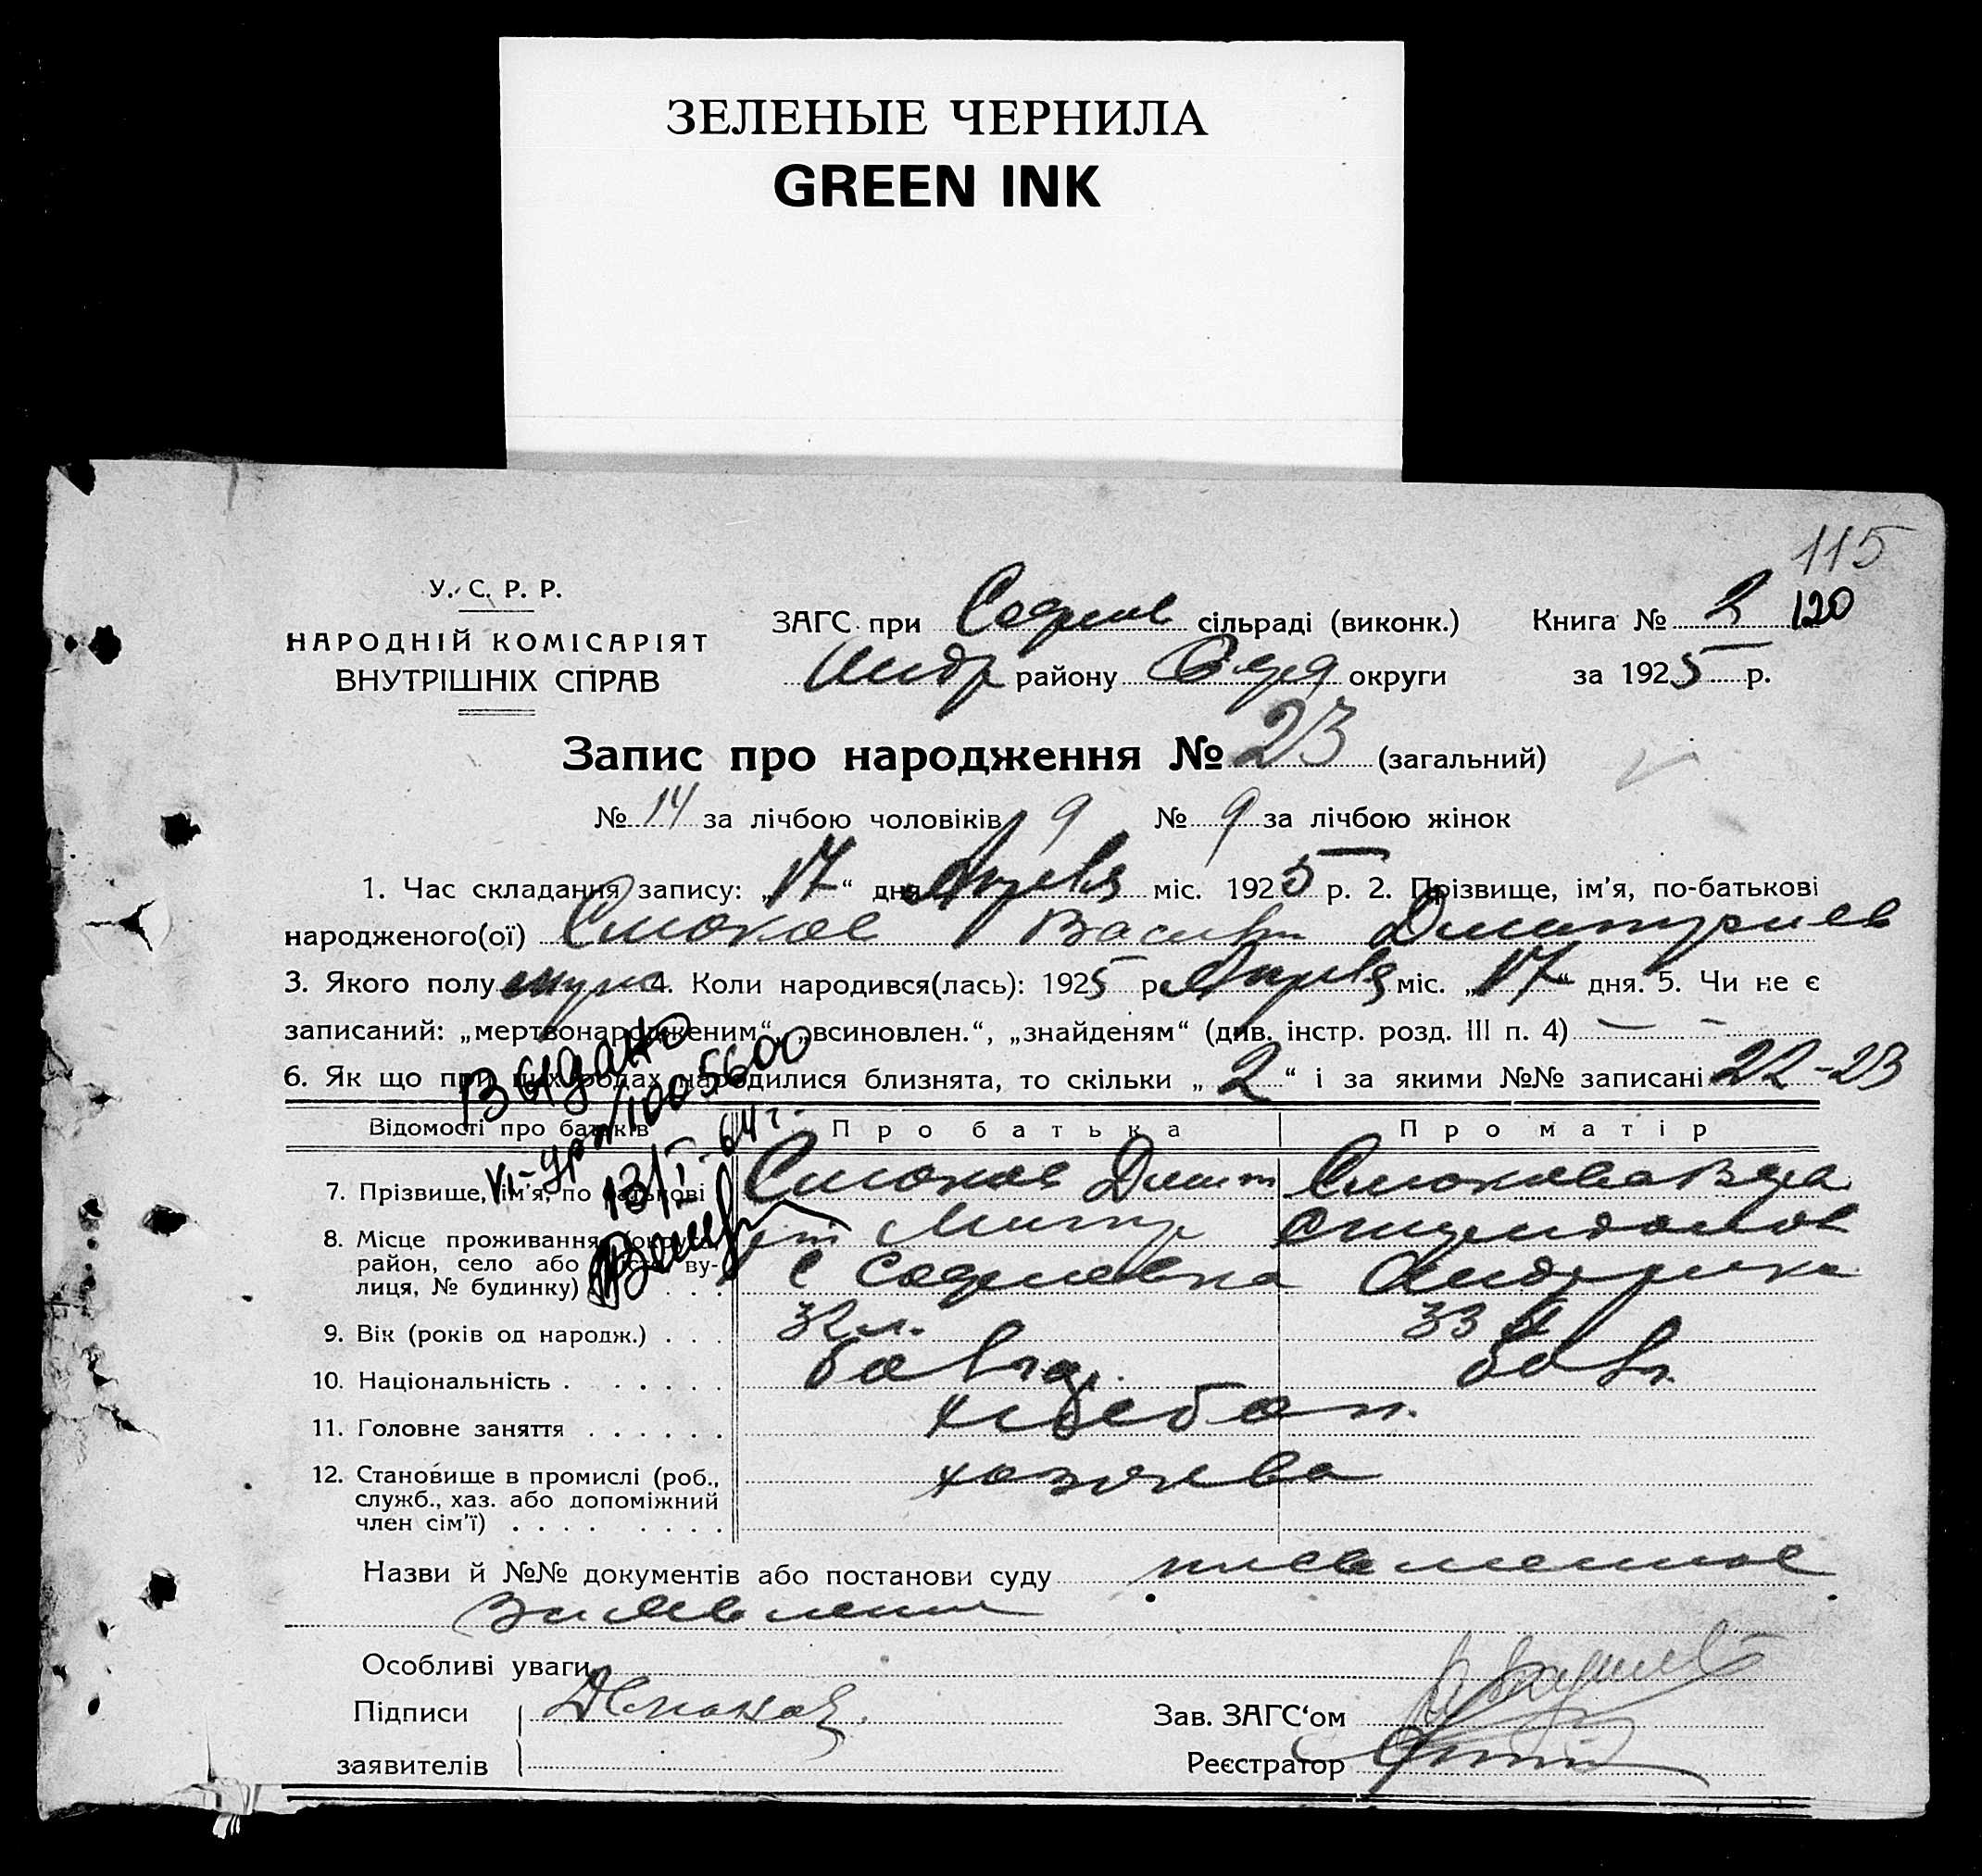 ЗЕЛЕНЫЕ ЧЕРНИЛА
GREEN INK
115
У. С. Р. Р.
НАРОДНІЙ КОМІСАРІЯТ
ВНУТРІШНІХ СПРАВ
ЗАГС при Софиев сільраді (виконк.) Книга № 2 120
Андр району округи за 1925 р.
Запис про народження № 23 (загальний)
№ 14 за лічбою чоловіків 9 № 9 за лічбою жінок
1. Час складання запису: „17“ дня Апреля міс. 1925 р. 2. Прізвище, ім'я, по-батькові
народженого(ої) Смоков Василь Дмитриев
3. Якого полу муж 4. Коли народився(лась): 1925 р. Апреля міс. „17“ дня. 5. Чи не є
записаний: „мертвонародженим“, „всиновлен.“, „знайденям“ (див. інстр. розд. III п. 4)
6. Як що при цих родах народилися близнята, то скільки „2“ і за якими №№ записані 22-23
Выдано
VI-УР №1005600
13/I-64 г.
Відомості про батьків Про батька Про матір
7. Прізвище, ім'я, по батькові Смоков Дмит Смокова Вера
8. Місце проживання (округа, район, село або місто, вулиця, № будинку) с Софиевка
9. Вік (років од народж.) 32 л. 33
10. Національність болгар. болг.
11. Головне заняття хлебоп.
12. Становище в промислі (роб., служб., хаз. або допоміжний член сім'ї) хозяева
Назви й №№ документів або постанови суду письменное
заявление
Особливі уваги
Підписи ДСмоков
Зав. ЗАГС'ом
заявителів
Реєстратор